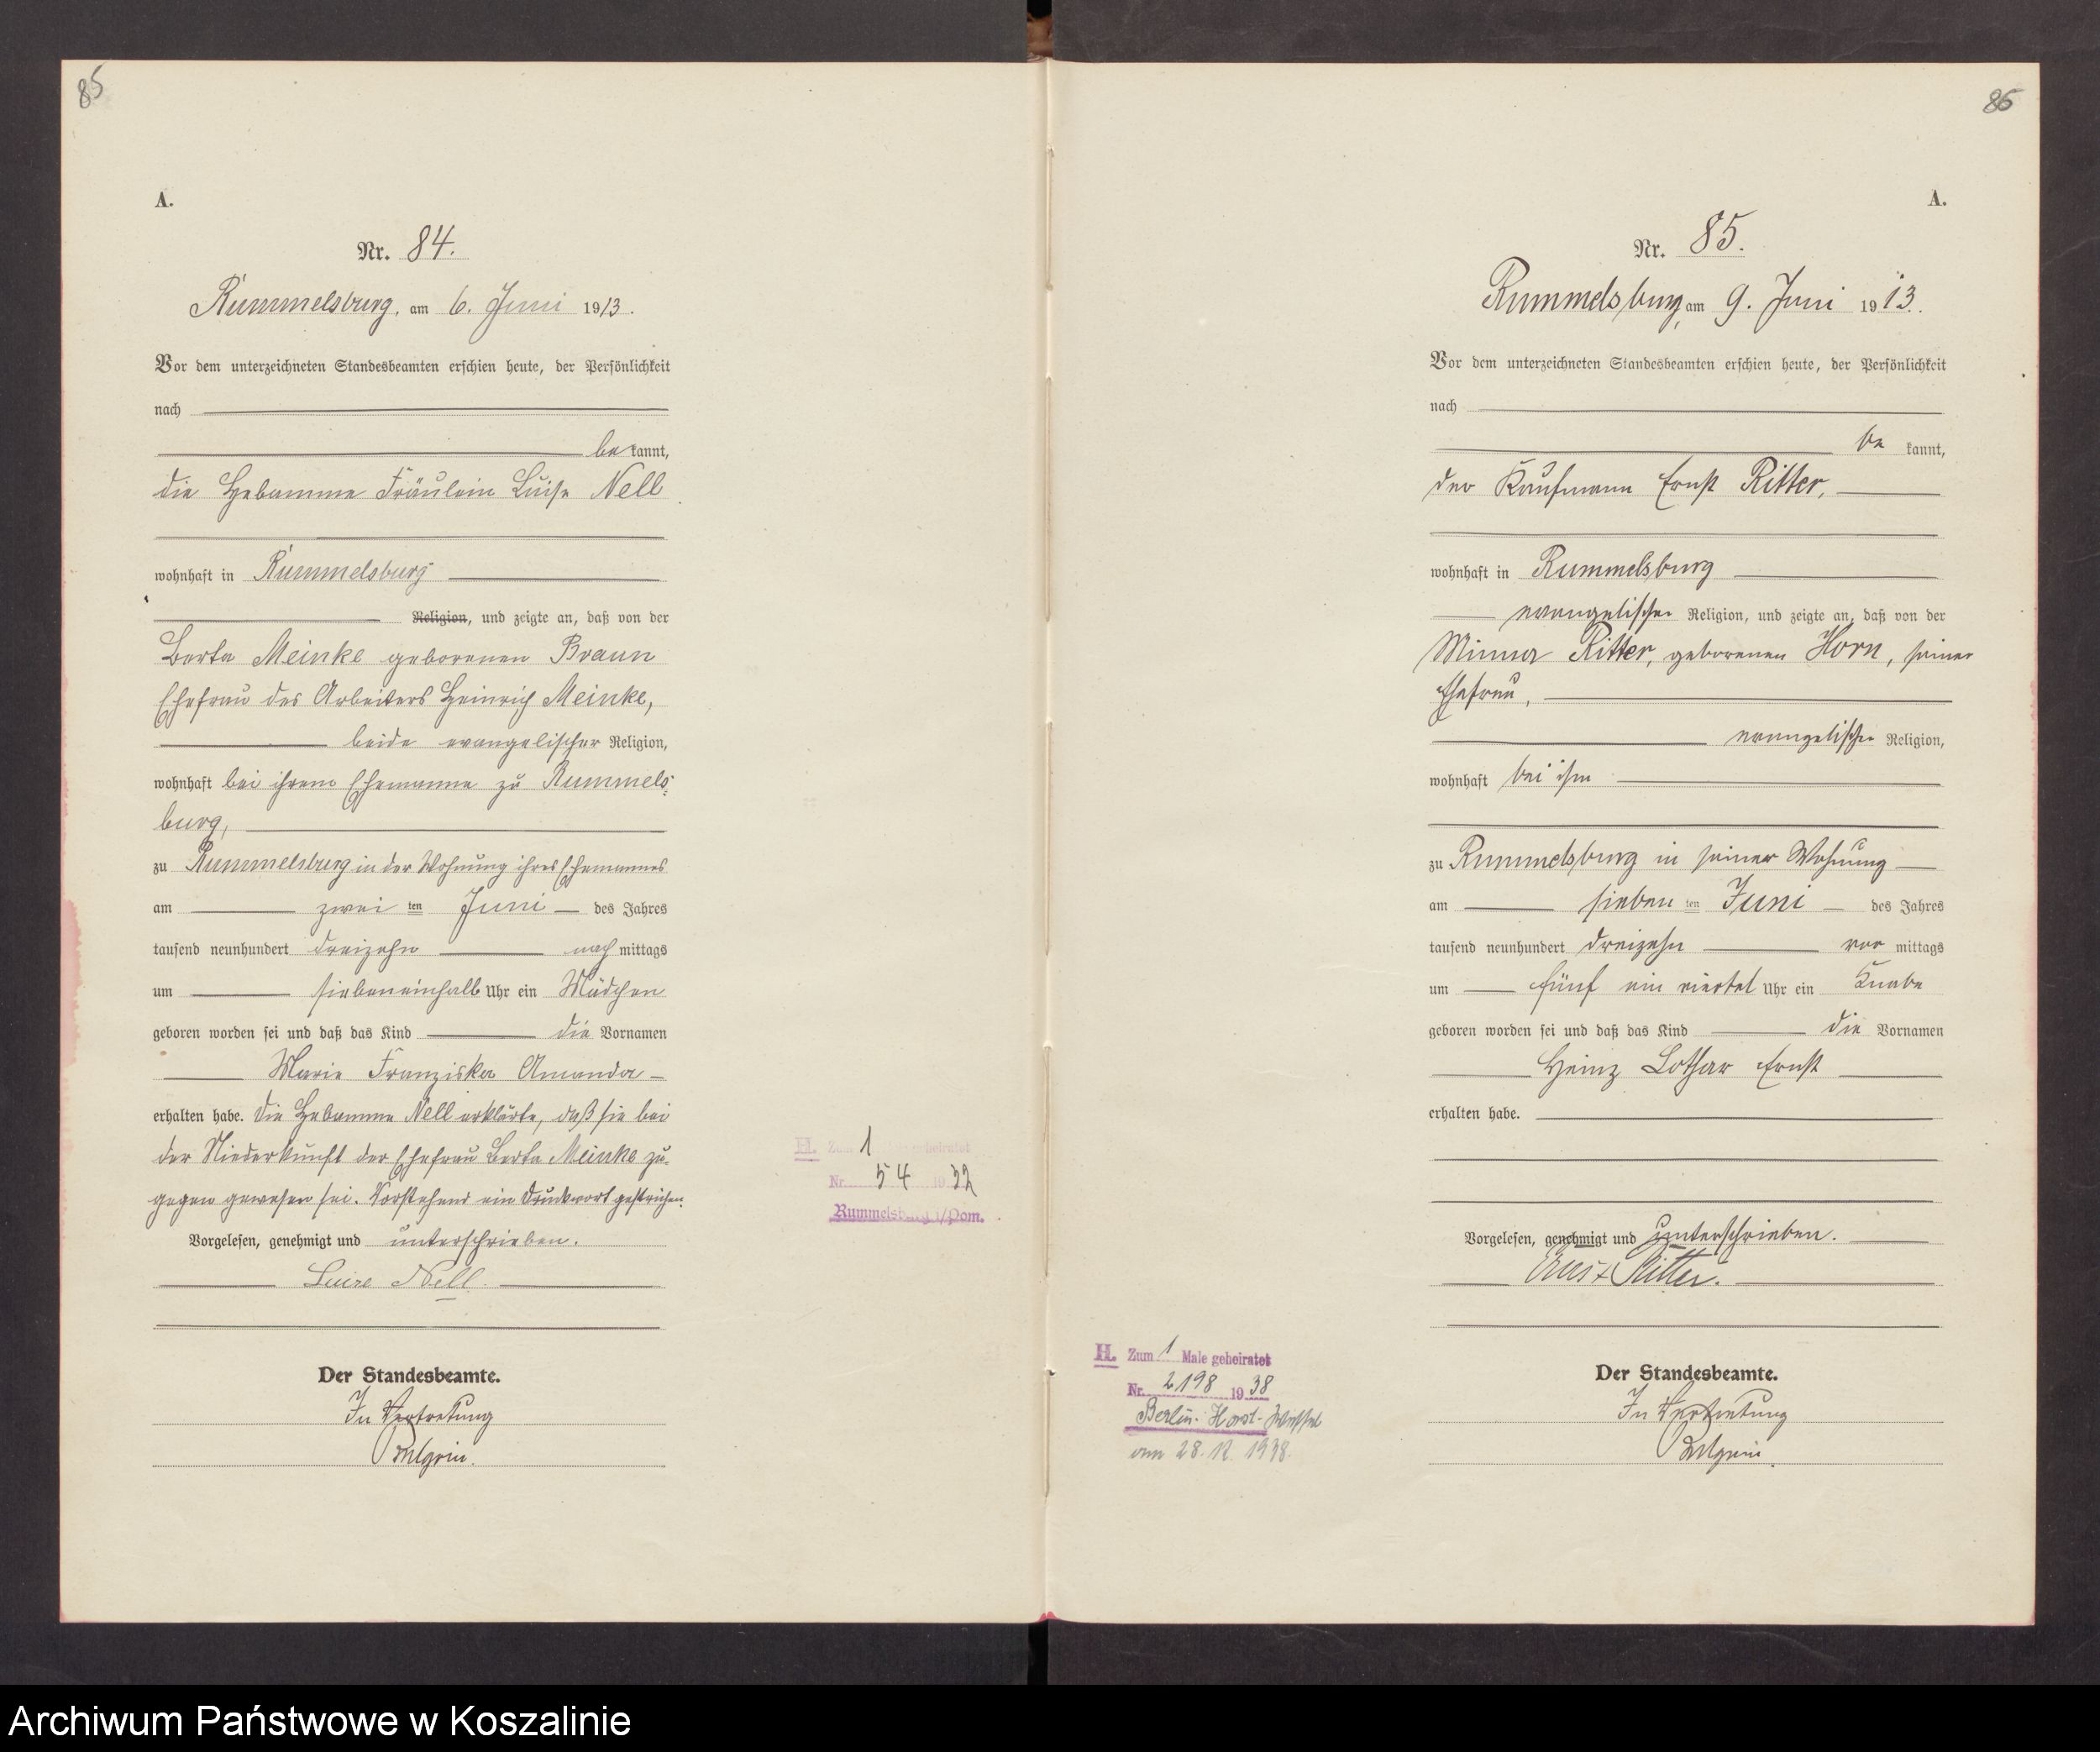 85
A.
Nr. 84.
Rummelsburg, am 6. Juni 1913.
Vor dem unterzeichneten Standesbeamten erschien heute, der Persönlichkeit
nach
bekannt,
die Hebamme Fräulein Luise Nell
wohnhaft in Rummelsburg
Religion, und zeigte an, daß von der
Berta Meinke geborenen Braun
Ehefrau des Arbeiters Heinrich Meinke,
beide evangelischer Religion,
wohnhaft bei ihrem Ehemanne zu Rummels-
burg,
zu Rummelsburg in der Wohnung ihres Ehemannes
am zwei ten Juni des Jahres
tausend neunhundert dreizehn nach mittags
um siebeneinhalb Uhr ein Mädchen
geboren worden sei und daß das Kind die Vornamen
Marie Franziska Amanda
erhalten habe. Die Hebamme Nell erklärte, daß sie bei
der Niederkunft der Ehefrau Berta Meinke zu-
gegen gewesen sei. Vorstehend ein Druckwort gestrichen.
Vorgelesen, genehmigt und unterschrieben.
Luise Nell.
Der Standesbeamte.
In Vertretung
H. Zum 1 heiratet
Nr. 54 1932
Rummelsburg i/Pom.
86
A.
Nr. 85.
Rummelsburg, am 9. Juni 1913.
Vor dem unterzeichneten Standesbeamten erschien heute, der Persönlichkeit
nach
be kannt,
der Kaufmann Ernst Ritter,
wohnhaft in Rummelsburg
evangelischer Religion, und zeigte an, daß von der
Minna Ritter, geborenen Horn, seiner
Ehefrau,
evangelischer Religion,
wohnhaft bei ihm
zu Rummelsburg in seiner Wohnung
am sieben ten Juni des Jahres
tausend neunhundert dreizehn vor mittags
um fünf ein viertel Uhr ein Knabe
geboren worden sei und daß das Kind die Vornamen
Heinz Lothar Ernst
erhalten habe.
Vorgelesen, genehmigt und unterschrieben.
Ernst Ritter.
Der Standesbeamte.
In Vertretung
H. Zum 1 Male geheiratet
Nr. 2198 1938
Berlin-Horst-Wessel
am 28. 12. 1938.
Archiwum Państwowe w Koszalinie